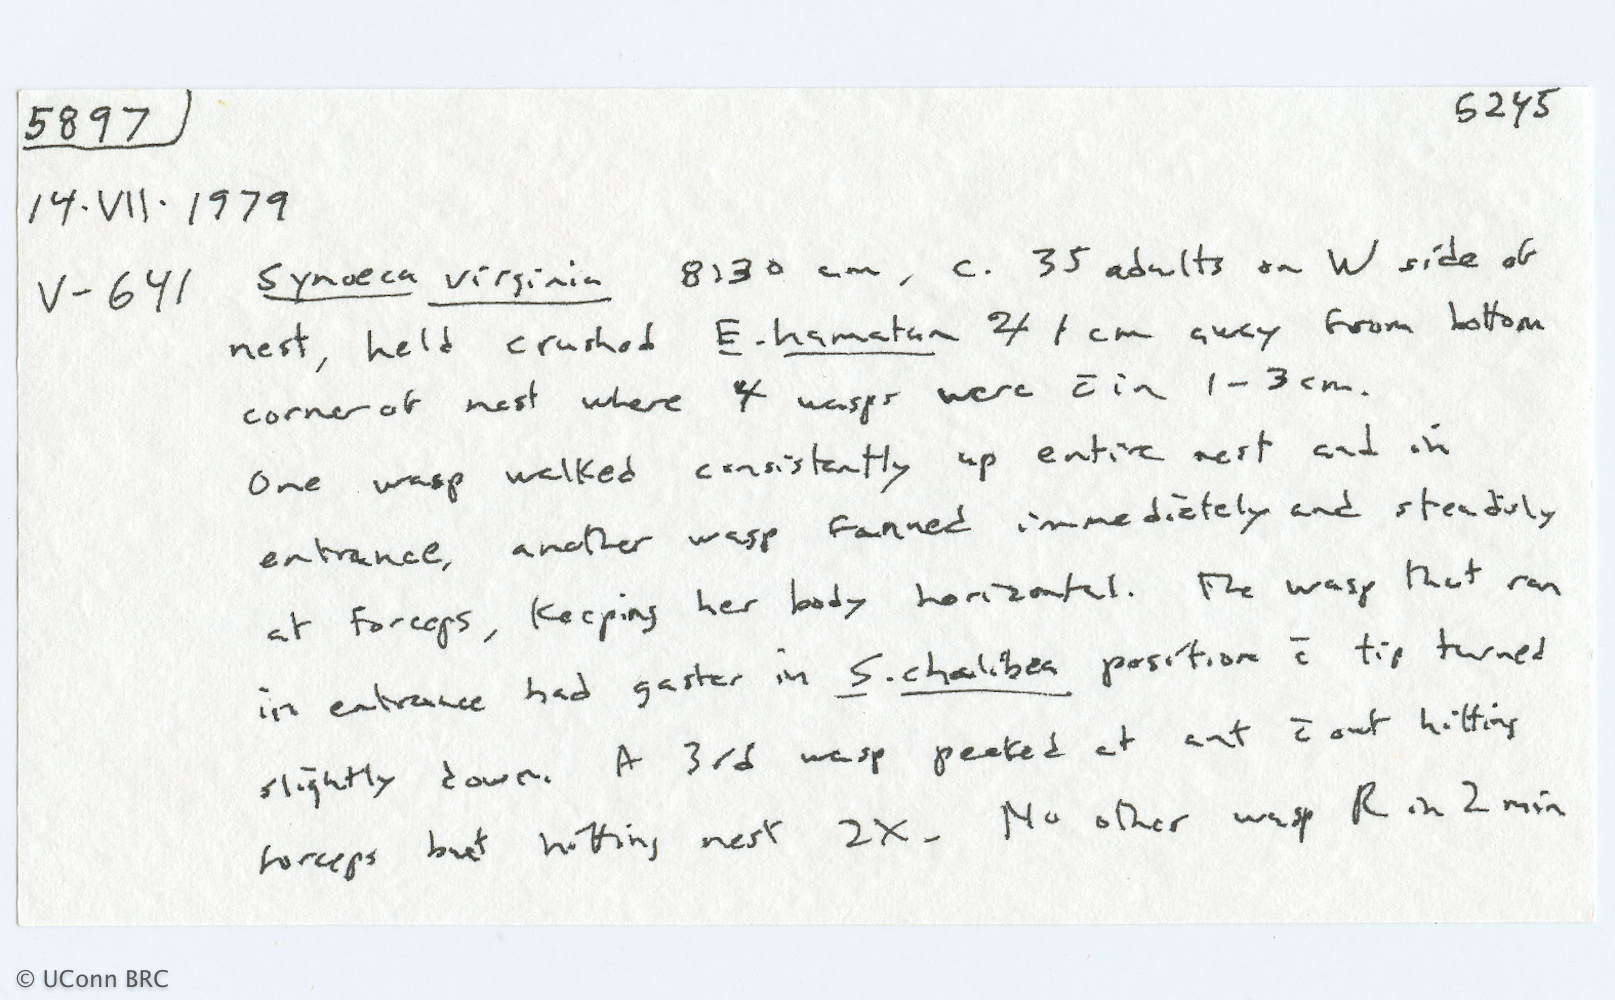 5897
5245
14.VII.1979
V-641 Synoeca virginia 8:30 am, c. 35 adults on W side of
nest, held crushed E. hamatum 1 cm away from bottom
corner of nest where 4 wasps were c̄in 1-3 cm.
One wasp walked consistently up entire nest and in
entrance, another wasp fanned immediately and steadily
at forceps, keeping her body horizontal. The wasp that ran
in entrance had gaster in S. chalibea position c̄ tip turned
slightly down. A 3rd wasp peeked at ant c̄out hitting
forceps but hitting nest 2X. No other wasp R in 2 min
© UConn BRC